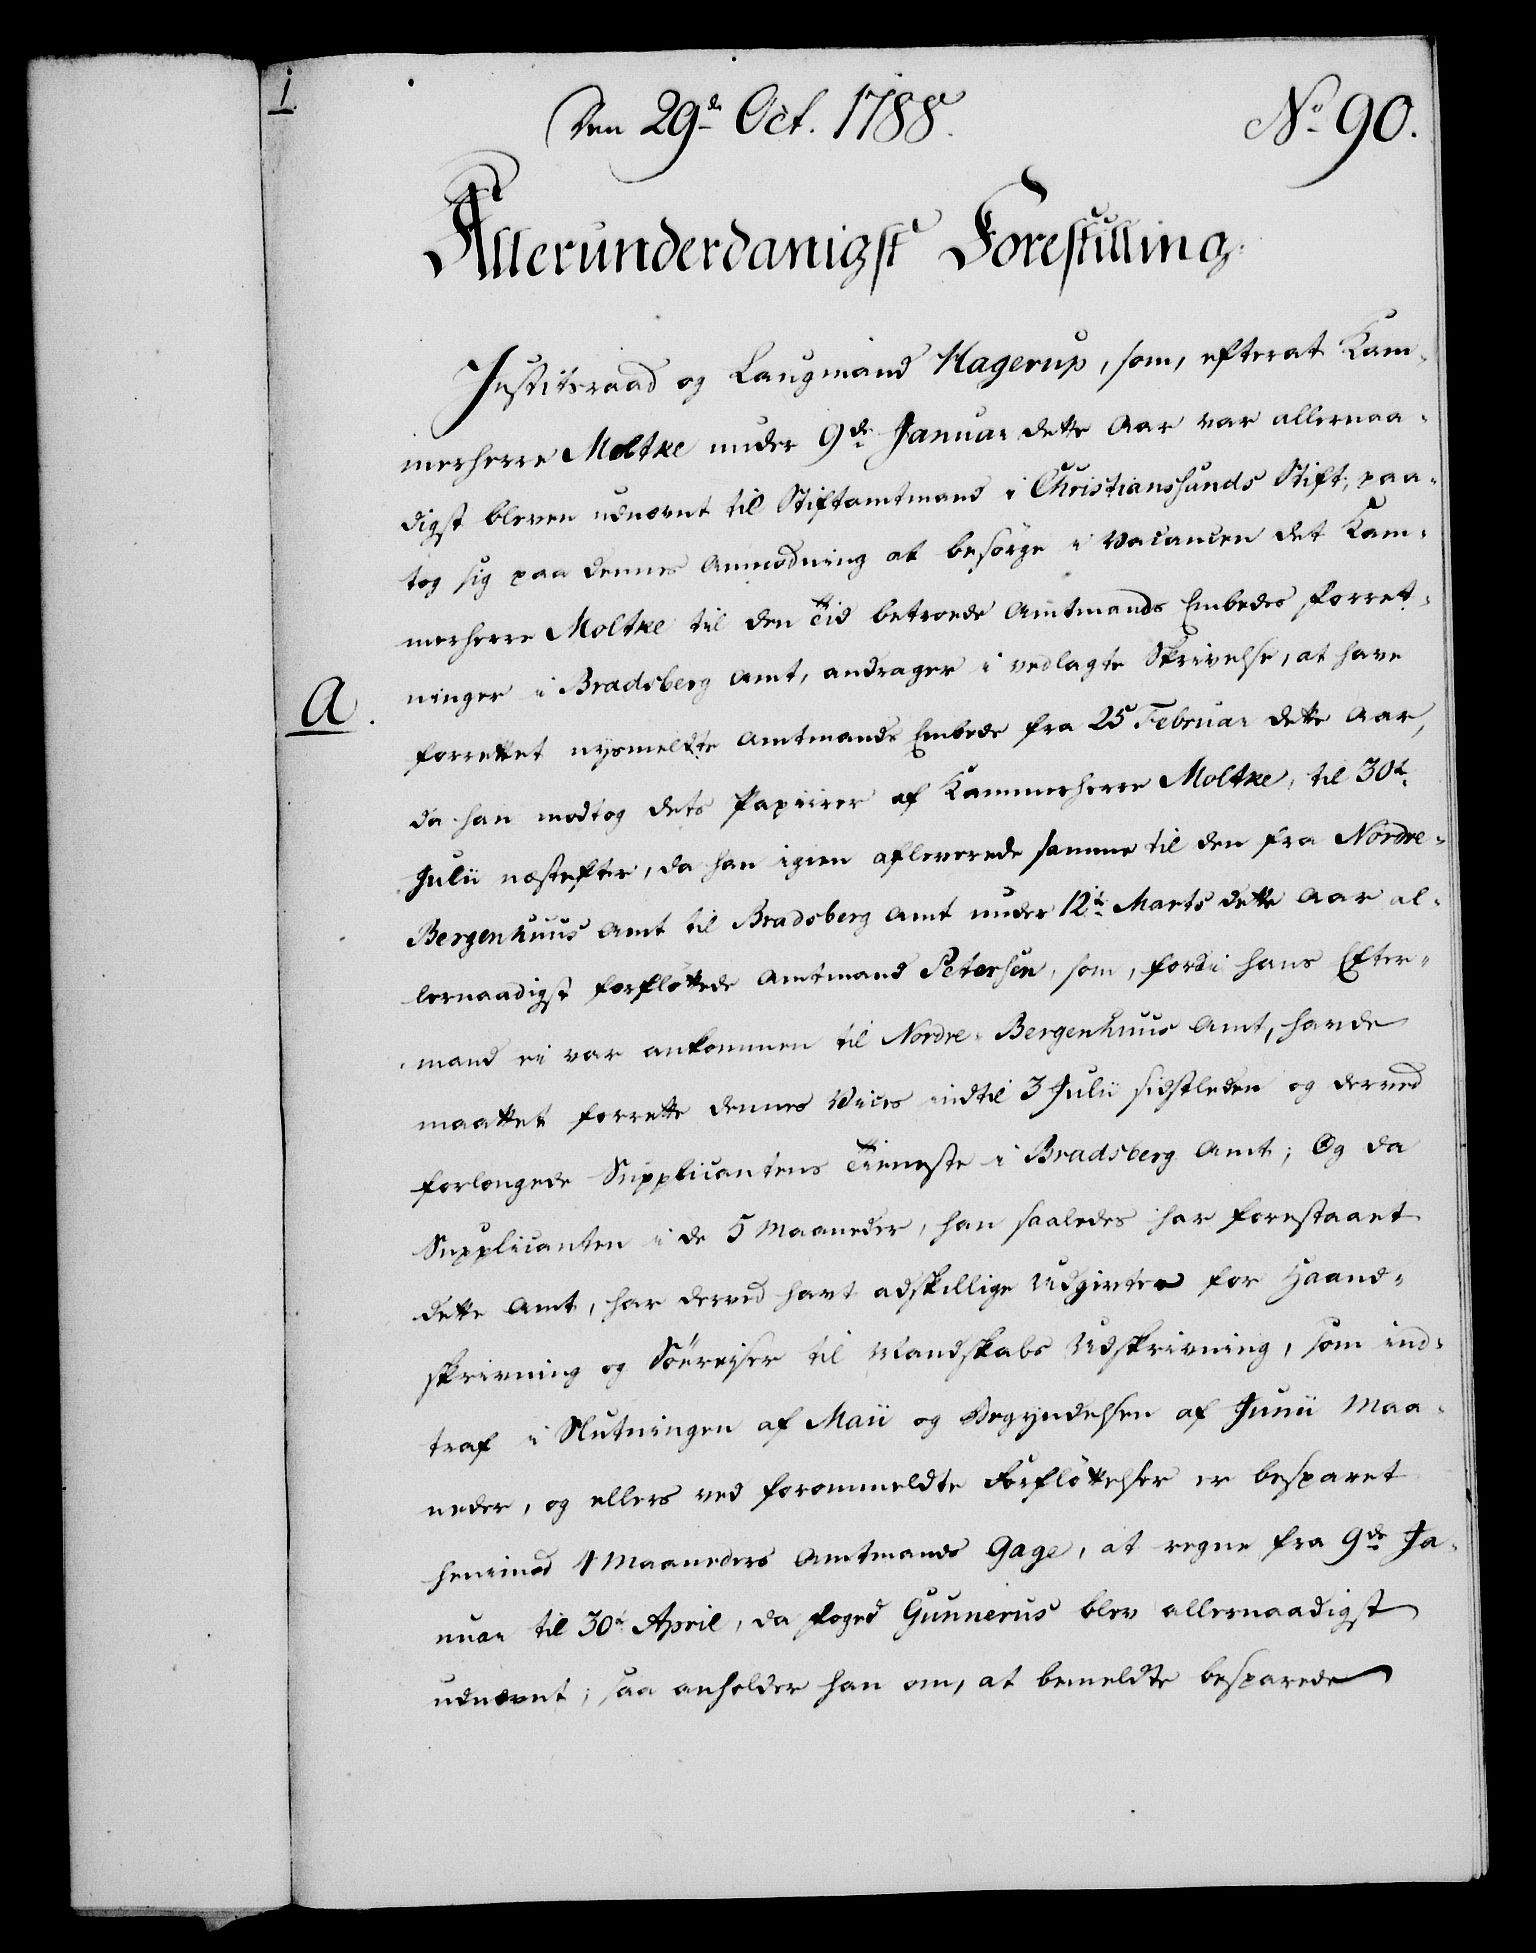 1
Den 29de Oct. 1788.
No 90.
Allerunderdanigst Forestilling.
Justitsraad og Laugmand Hagerup, som, efterat Kam-
merherre Moltke under 9de Januar dette Aar var allernaa-
digst bleven udnævnt til Stiftamtmand i Christianssands Stift, paa-
tog sig paa dennes Anmodning at besørge i Vacancen det Kam-
merherre Moltke til den Tid betroede Amtmands Embedes Forret-
ninger i Bradsberg Amt, andrager i vedlagte Skrivelse, at have
A.
forrettet nysmeldte Amtmands Embede fra 25 Februar dette Aar,
da han modtog dets Papiirer af Kammerherre Moltke, til 30t
Julii næstefter, da han igien afleverede samme til den fra Nordre-
Bergenhuus Amt til Bradsberg Amt under 12t Marts dette Aar al-
lernaadigst forfløttede Amtmand Petersen, som, fordi hans Efter-
mand ei var ankommen til Nordre-Bergenhuus Amt, havde
maattet forrette dennes Vices indtil 3 Julii sidstleden og derved
forlængede Supplicantens Tieneste i Bradsberg Amt; Og da
Supplicanten i de 5 Maaneder, han saaledes har forestaaet
dette Amt, har derved havt adskillige Udgivter for Haand-
skrivning og Søereiser til Mandskabs Udskrivning, som ind-
traf i Slutningen af Maii og Begyndelsen af Junii Maa-
neder, og ellers ved forommeldte Forfløttelser er besparet
henimod 4 Maaneders Amtmands Gage, at regne fra 9de Ja-
nuar til 30t April, da Foged Gunnerus blev allernaadigst
udnævnt; saa anholder han om, at bemeldte besparede